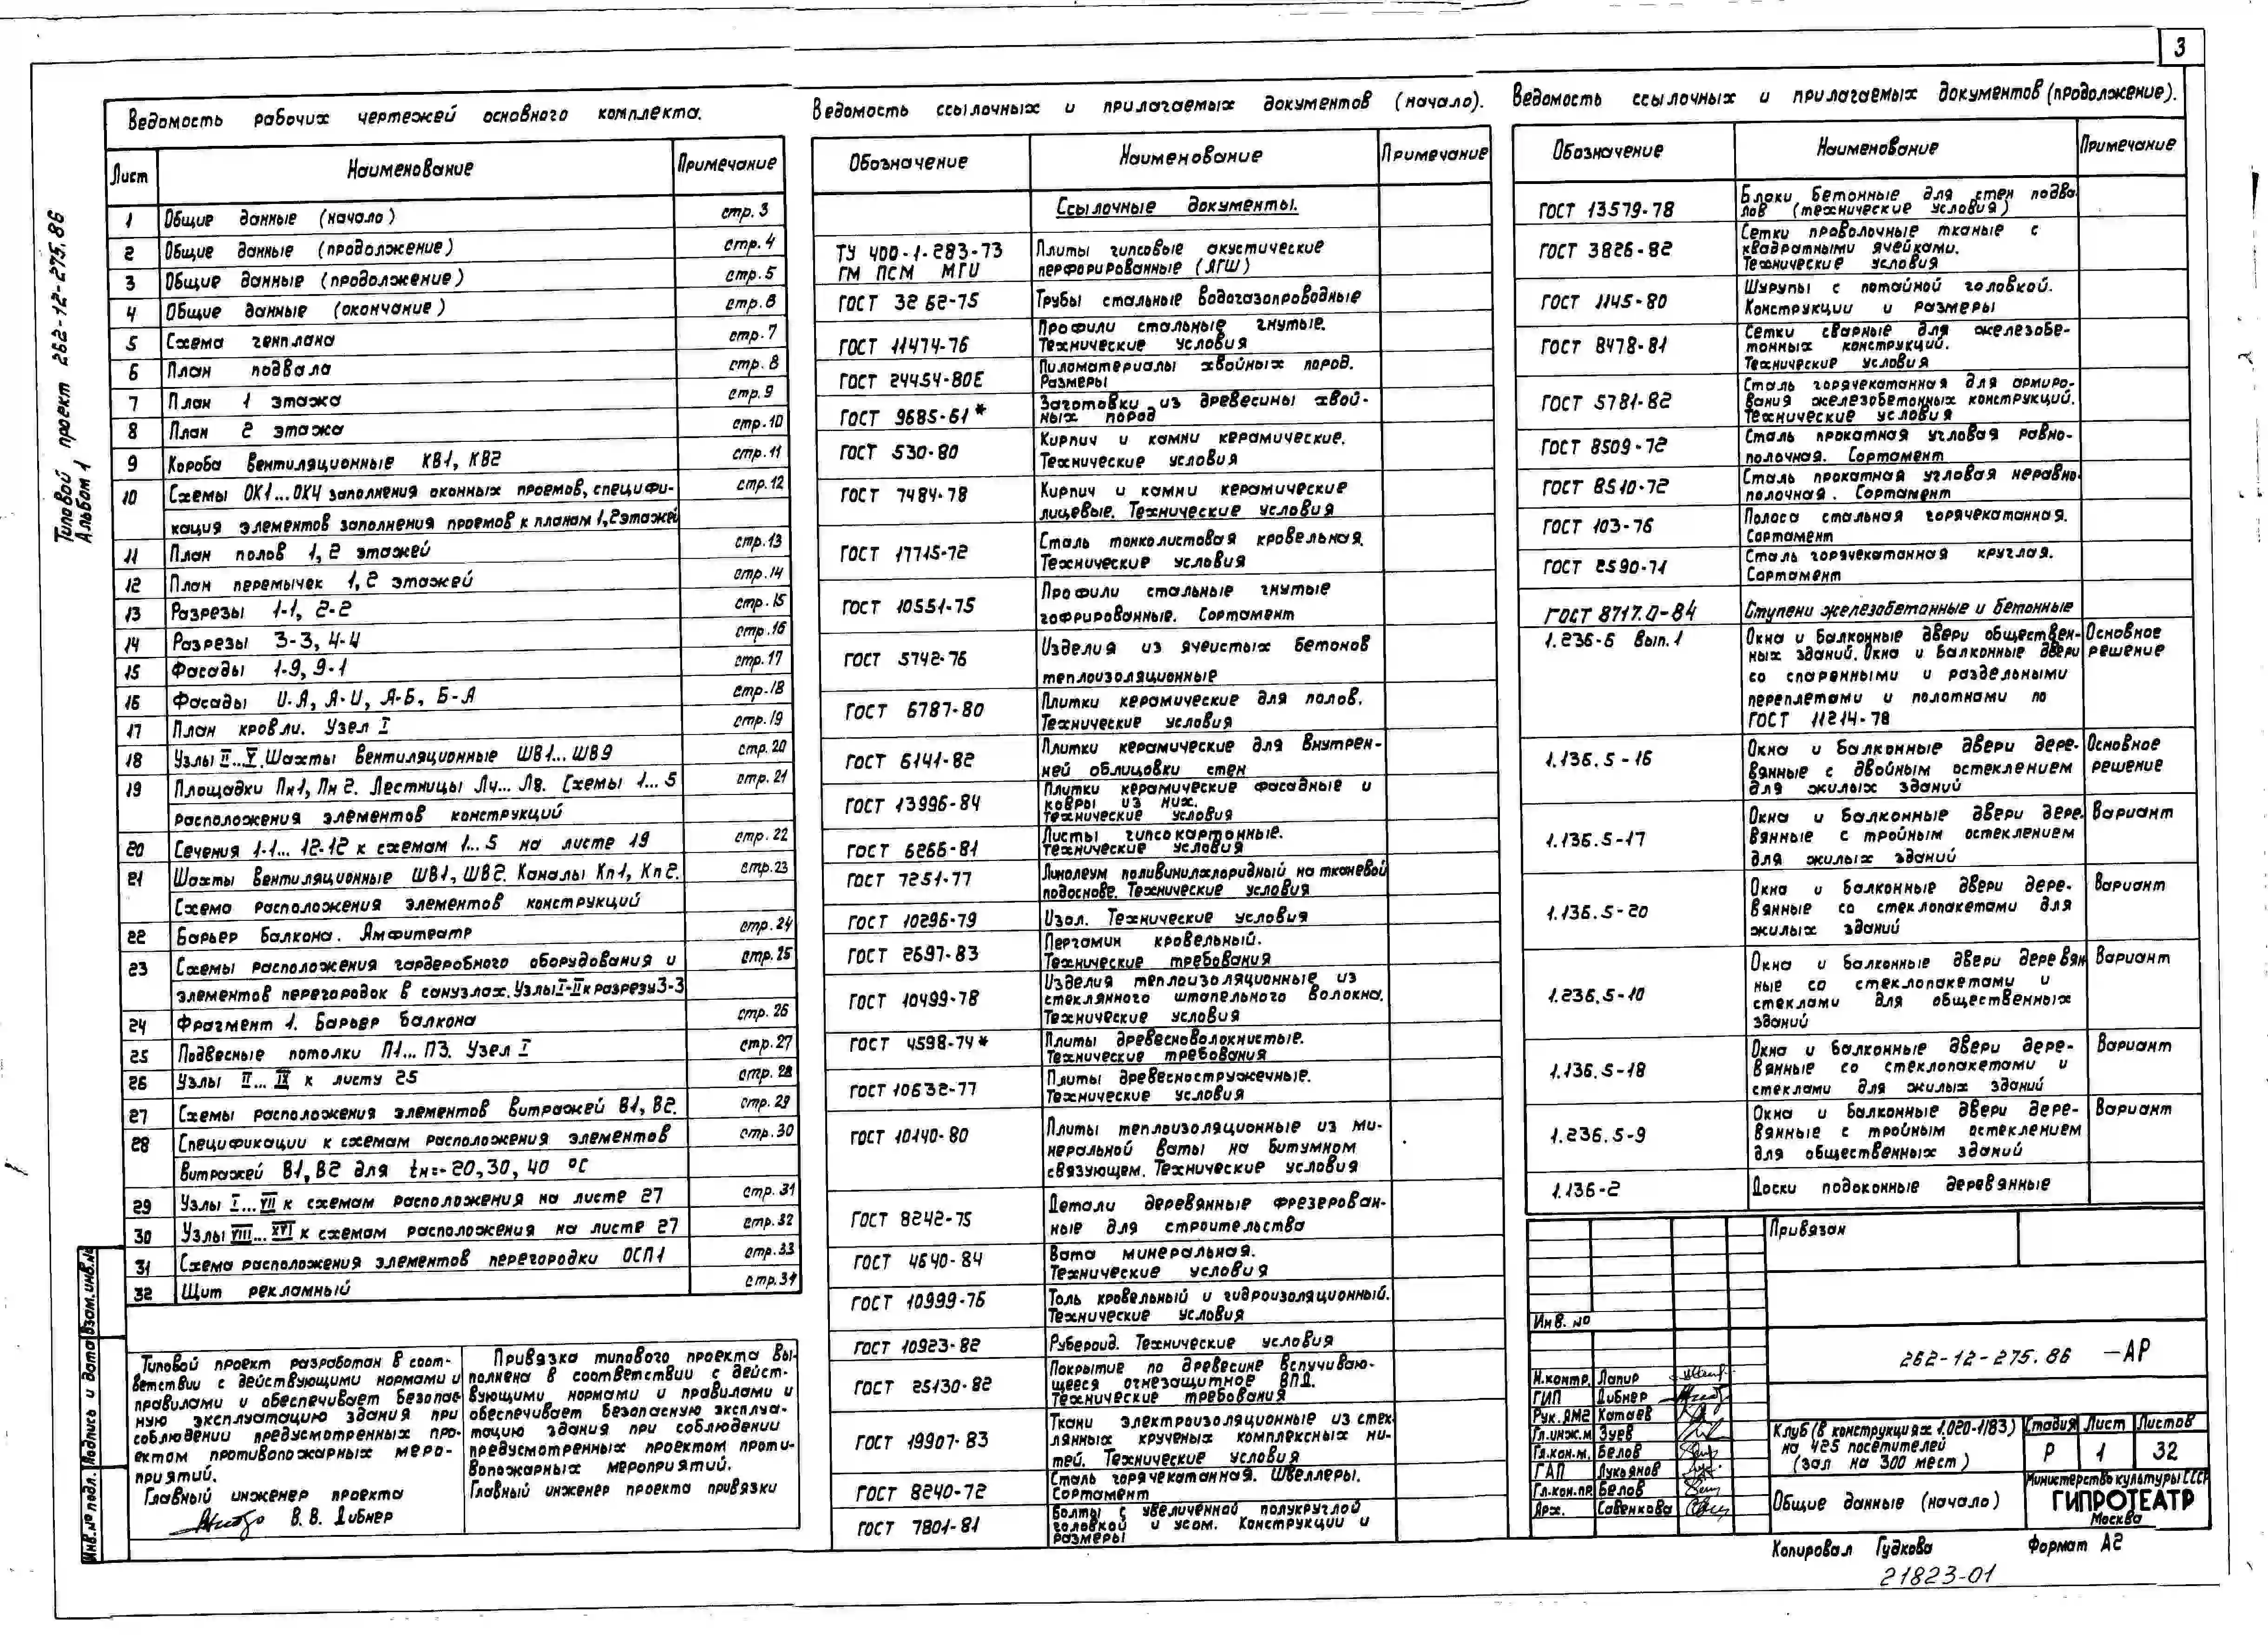 3
Типовой проект 262-12-275.86
Альбом 1
Ведомость рабочих чертежей основного комплекта.
Лист Наименование Примечание
1 Общие данные (начало) стр. 3
2 Общие данные (продолжение) стр. 4
3 Общие данные (продолжение) стр. 5
4 Общие данные (окончание) стр. 6
5 Схема генплана стр. 7
6 План подвала стр. 8
7 План 1 этажа стр. 9
8 План 2 этажа стр. 10
9 Короба вентиляционные КВ1, КВ2 стр. 11
10 Схемы ОК1...ОК4 заполнения оконных проемов, специфи- стр. 12
кация элементов заполнения проемов к планам 1,2 этажей
11 План полов 1, 2 этажей стр. 13
12 План перемычек 1, 2 этажей стр. 14
13 Разрезы 1-1, 2-2 стр. 15
14 Разрезы 3-3, 4-4 стр. 16
15 Фасады 1-9, 9-1 стр. 17
16 Фасады И-А, А-И, А-Б, Б-А стр. 18
17 План кровли. Узел I стр. 19
18 Узлы II...V. Шахты вентиляционные ШВ1...ШВ9 стр. 20
19 Площадки Пм1, Пм2. Лестницы Л4...Л8. Схемы 1...5 стр. 21
расположения элементов конструкций
20 Сечения 1-1... 12-12 к схемам 1...5 на листе 19 стр. 22
21 Шахты вентиляционные ШВ1, ШВ2. Каналы Кп1, Кп2. стр. 23
Схема расположения элементов конструкций
22 Барьер балкона. Амфитеатр стр. 24
23 Схемы расположения гардеробного оборудования и стр. 25
элементов перегородок в санузлах. Узлы I-II к разрезу 3-3
24 Фрагмент 1. Барьер балкона стр. 26
25 Подвесные потолки П1... П3. Узел I стр. 27
26 Узлы II...IX к листу 25 стр. 28
27 Схемы расположения элементов витражей В1, В2. стр. 29
28 Спецификации к схемам расположения элементов стр. 30
витражей В1, В2 для tн=-20, 30, 40 °С
29 Узлы I...VII к схемам расположения на листе 27 стр. 31
30 Узлы VIII...XVI к схемам расположения на листе 27 стр. 32
31 Схема расположения элементов перегородки ОСП1 стр. 33
32 Щит рекламный стр. 34
Типовой проект разработан в соот-
ветствии с действующими нормами и
правилами и обеспечивает безопас-
ную эксплуатацию здания при
соблюдении предусмотренных про-
ектом противопожарных меро-
приятий.
Главный инженер проекта
В. В. Дибнер
Привязка типового проекта вы-
полнена в соответствии с дейст-
вующими нормами и правилами и
обеспечивает безопасную эксплуа-
тацию здания при соблюдении
предусмотренных проектом проти-
вопожарных мероприятий.
Главный инженер проекта привязки
Взам. инв. №
Подпись и дата
Инв. № подл.
Ведомость ссылочных и прилагаемых документов (начало).
Обозначение Наименование Примечание
Ссылочные документы.
ТУ 400-1-283-73 Плиты гипсовые акустические
ГМ ПСМ МГИ перфорированные (АГШ)
ГОСТ 3262-75 Трубы стальные водогазопроводные
ГОСТ 11474-76 Профили стальные гнутые.
Технические условия
ГОСТ 24454-80Е Пиломатериалы хвойных пород.
Размеры
ГОСТ 9685-61* Заготовки из древесины хвой-
ных пород
ГОСТ 530-80 Кирпич и камни керамические.
Технические условия
ГОСТ 7484-78 Кирпич и камни керамические
лицевые. Технические условия
ГОСТ 17715-72 Сталь тонколистовая кровельная.
Технические условия
ГОСТ 10551-75 Профили стальные гнутые
гофрированные. Сортамент
ГОСТ 5742-76 Изделия из ячеистых бетонов
теплоизоляционные
ГОСТ 6787-80 Плитки керамические для полов.
Технические условия
ГОСТ 6141-82 Плитки керамические для внутрен-
ней облицовки стен
ГОСТ 13996-84 Плитки керамические фасадные и
ковры из них.
Технические условия
ГОСТ 6266-81 Листы гипсокартонные.
Технические условия
ГОСТ 7251-77 Линолеум поливинилхлоридный на тканевой
подоснове. Технические условия
ГОСТ 10296-79 Изол. Технические условия
ГОСТ 2697-83 Пергамин кровельный.
Технические требования
ГОСТ 10499-78 Изделия теплоизоляционные из
стеклянного штапельного волокна.
Технические условия
ГОСТ 4598-74* Плиты древесноволокнистые.
Технические требования
ГОСТ 10632-77 Плиты древесностружечные.
Технические условия
ГОСТ 10140-80 Плиты теплоизоляционные из ми-
неральной ваты на битумном
связующем. Технические условия
ГОСТ 8242-75 Детали деревянные фрезерован-
ные для строительства
ГОСТ 4640-84 Вата минеральная.
Технические условия
ГОСТ 10999-76 Толь кровельный и гидроизоляционный.
Технические условия
ГОСТ 10923-82 Рубероид. Технические условия
ГОСТ 25130-82 Покрытие по древесине вспучиваю-
щееся огнезащитное ВПД.
Технические требования
ГОСТ 19907-83 Ткани электроизоляционные из стек
лянных крученых комплексных ни-
тей. Технические условия
ГОСТ 8240-72 Сталь горячекатанная. Швеллеры.
Сортамент
ГОСТ 7801-81 Болты с увеличенной полукруглой
головкой и усом. Конструкции и
размеры
Ведомость ссылочных и прилагаемых документов (продолжение).
Обозначение Наименование Примечание
ГОСТ 13579-78 Блоки бетонные для стен подва-
лов (технические условия)
ГОСТ 3826-82 Сетки проволочные тканые с
квадратными ячейками.
Технические условия
ГОСТ 1145-80 Шурупы с потайной головкой.
Конструкции и размеры
ГОСТ 8478-81 Сетки сварные для железобе-
тонных конструкций.
Технические условия
ГОСТ 5781-82 Сталь горячекатанная для армиро-
вания железобетонных конструкций.
Технические условия
ГОСТ 8509-72 Сталь прокатная угловая равно-
полочная. Сортамент
ГОСТ 8510-72 Сталь прокатная угловая неравно-
полочная. Сортамент
ГОСТ 103-76 Полоса стальная горячекатанная.
Сортамент
ГОСТ 2590-71 Сталь горячекатанная круглая.
Сортамент
ГОСТ 8717.0-84 Ступени железобетонные и бетонные
1.236-6 Вып. 1 Окна и балконные двери обществен- Основное
ных зданий. Окна и балконные двери решение
со спаренными и раздельными
переплетами и полотнами по
ГОСТ 11214-78
1.136.5-16 Окна и балконные двери дере- Основное
вянные с двойным остеклением решение
для жилых зданий
1.136.5-17 Окна и балконные двери дере- Вариант
вянные с тройным остеклением
для жилых зданий
1.136.5-20 Окна и балконные двери дере- Вариант
вянные со стеклопакетами для
жилых зданий
1.236.5-10 Окна и балконные двери деревян Вариант
ные со стеклопакетами и
стеклами для общественных
зданий
1.136.5-18 Окна и балконные двери дере- Вариант
вянные со стеклопакетами и
стеклами для жилых зданий
1.236.5-9 Окна и балконные двери дере- Вариант
вянные с тройным остеклением
для общественных зданий
1.136-2 Доски подоконные деревянные
Привязан
Инв. №
262-12-275.86 -АР
Н.контр. Лапир
ГИП Дибнер
Рук. АМ2 Катаев
Гл.инж.м Зуев
Гл.кон.м. Белов
ГАП Лукьянов
Гл.кон.пр. Белов
Арх. Савенкова
Клуб (в конструкциях 1.020-1/83)
на 425 посетителей
(зал на 300 мест)
Стадия Лист Листов
Р 1 32
Общие данные (начало)
Министерство культуры СССР
ГИПРОТЕАТР
Москва
Копировал Гудкова Формат А2
21823-01